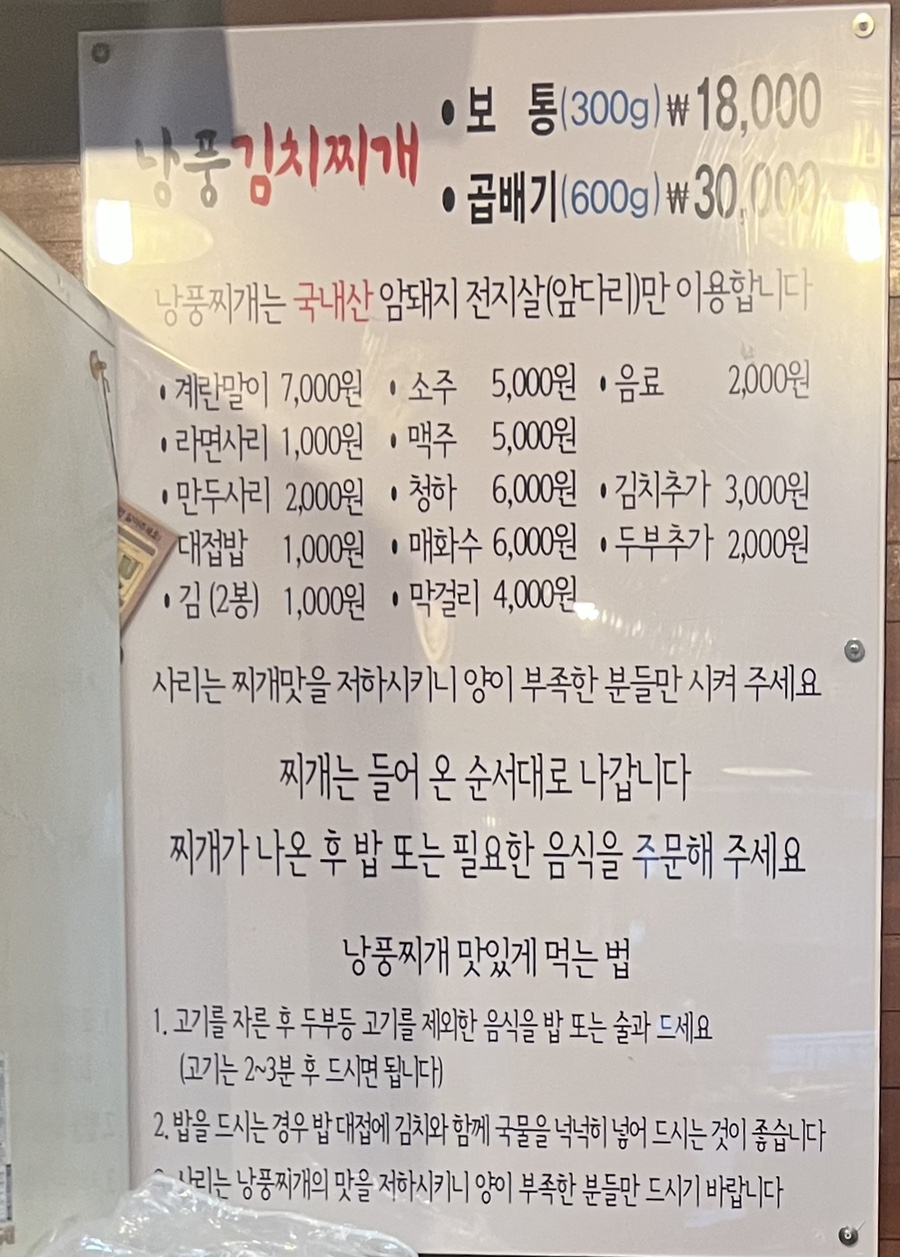 낭풍김치찌개
• 보 통(300g) ₩18,000
• 곱배기(600g) ₩30,000
낭풍찌개는 국내산 암돼지 전지살(앞다리)만 이용합니다
• 계란말이 7,000원 • 소주 5,000원 • 음료 2,000원
• 라면사리 1,000원 • 맥주 5,000원
• 만두사리 2,000원 • 청하 6,000원 • 김치추가 3,000원
대접밥 1,000원 • 매화수 6,000원 • 두부추가 2,000원
• 김 (2봉) 1,000원 • 막걸리 4,000원
사리는 찌개맛을 저하시키니 양이 부족한 분들만 시켜 주세요
찌개는 들어 온 순서대로 나갑니다
찌개가 나온 후 밥 또는 필요한 음식을 주문해 주세요
낭풍찌개 맛있게 먹는 법
1. 고기를 자른 후 두부등 고기를 제외한 음식을 밥 또는 술과 드세요
(고기는 2~3분 후 드시면 됩니다)
2. 밥을 드시는 경우 밥 대접에 김치와 함께 국물을 넉넉히 넣어 드시는 것이 좋습니다
사리는 낭풍찌개의 맛을 저하시키니 양이 부족한 분들만 드시기 바랍니다